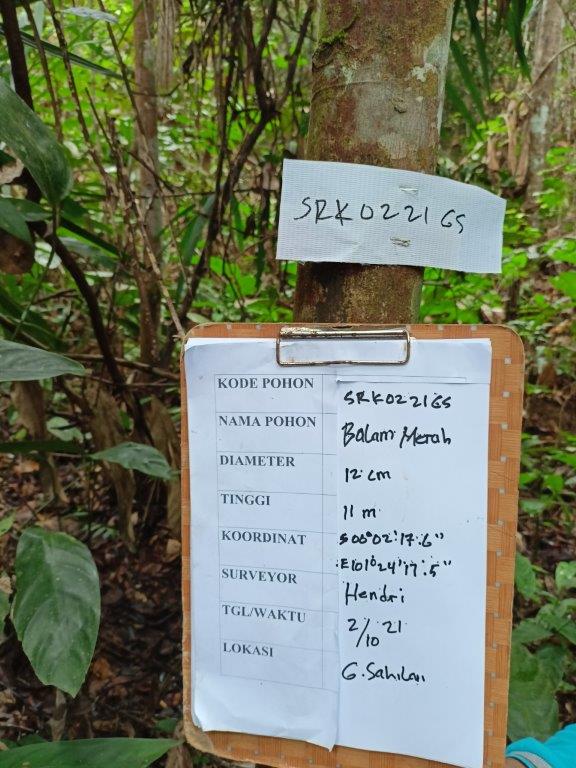 SRK0221GS
KODE POHON SRK0221GS
NAMA POHON Balam Merah
DIAMETER 12 cm
TINGGI 11 m
KOORDINAT S 00°02'17.6"
E101°24'17.5"
SURVEYOR Hendri
TGL/WAKTU 2/10 21
LOKASI G. Sahilan